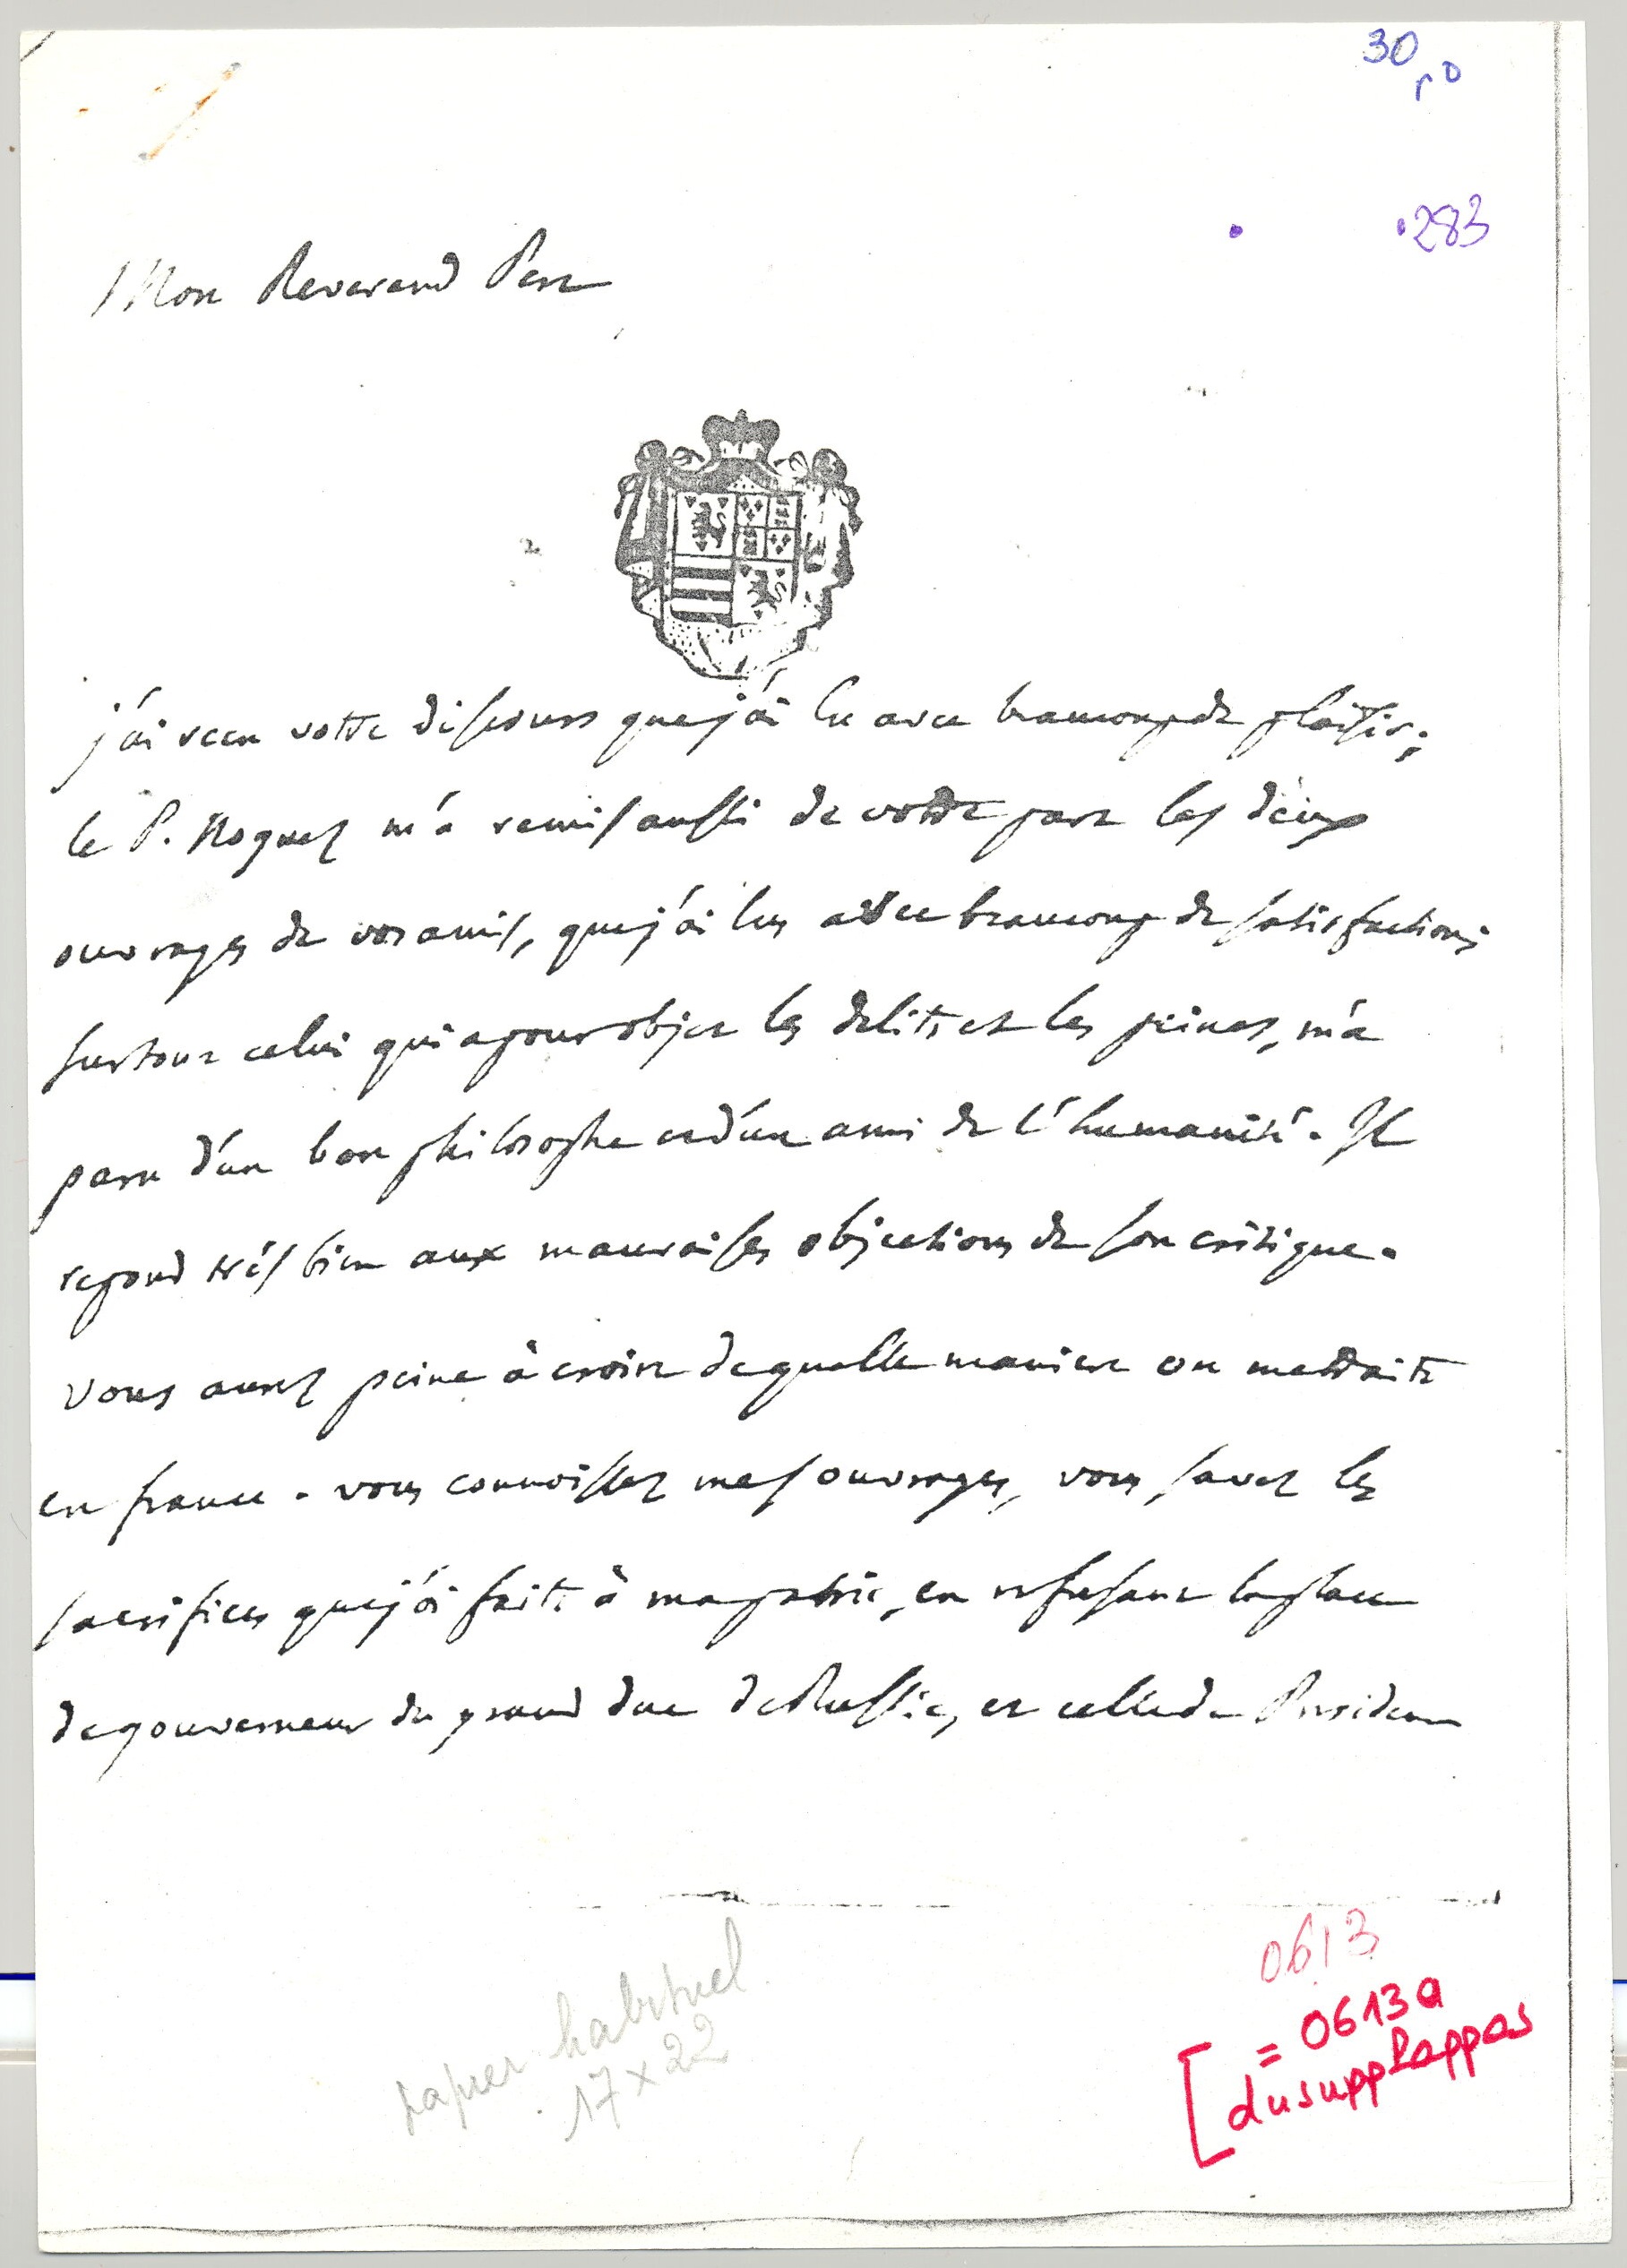 30 r°
283
Mon Reverend Pere
j'ai recu votre discours que j'ai lu avec beaucoup de plaisir;
le P. Noguez m'a remis aussi de votre part les deux
ouvrages de vos amis, que j'ai lus avec beaucoup de satisfaction;
surtout celui qui a pour objet les delits et les peines, m'a
paru d'un bon philosophe et d'un ami de l'humanité. Il
repond trés bien aux mauvaises objections de son critique.
Vous aurez peine à croire de quelle maniere on me traite
en france. vous connoissez mes ouvrages, vous savez les
sacrifices que j'ai faits à ma patrie, en refusant la place
de gouverneur du grand duc de Russie, et celle de President
papier habituel
17 x 22
0613
= 0613a
du supp Pappas